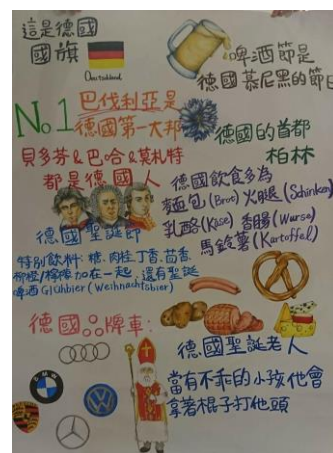 這是德國
國旗
Deutschland
啤酒節是
德國慕尼黑的節日
No.1 巴伐利亞是
德國第一大邦
德國的首都
柏林
貝多芬&巴哈&莫札特
都是德國人
德國飲食多為
麵包(Brot)火腿(Schinken)
乳酪(Käse)香腸(Wurse)
馬鈴薯(Kartoffel)
德國聖誕節
特別飲料:糖、肉桂、丁香、茴香
柳橙/檸檬加在一起,還有聖誕
啤酒Glühbier(Weihnachtsbier)
德國品牌車:
BMW
德國聖誕老人
當有不乖的小孩他會
拿著棍子打他頭